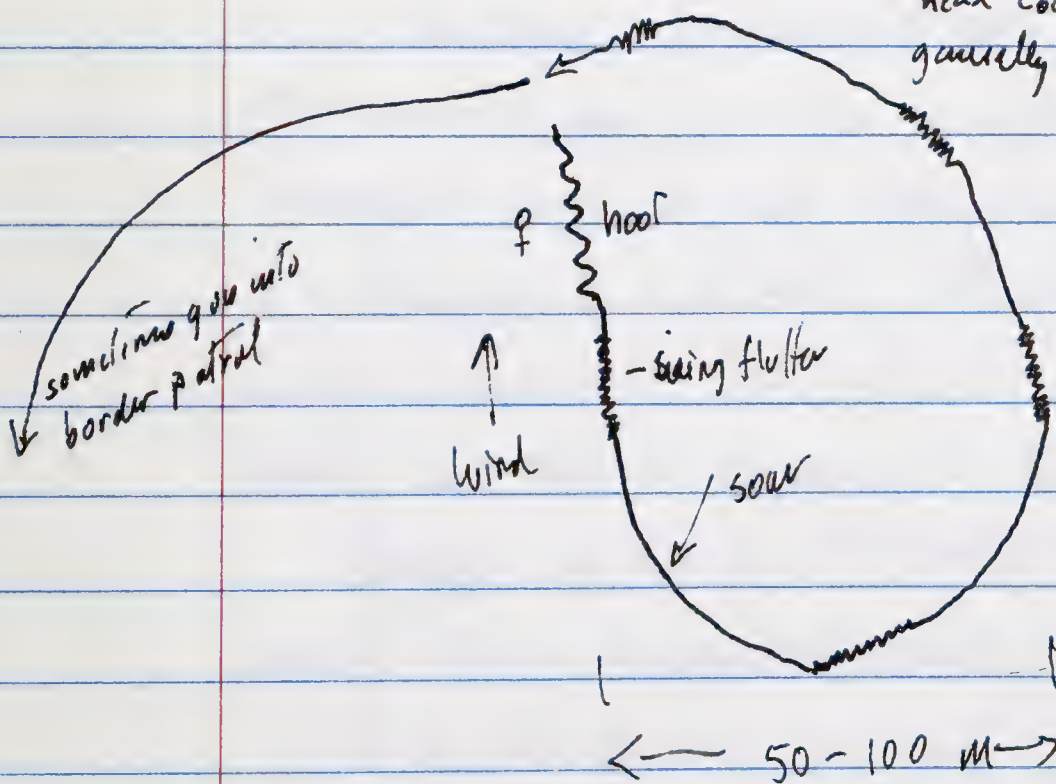 head
generally
♀ hoot
sometimes goes into
border patrol
- wing flutter
wind
soar
50 - 100 m